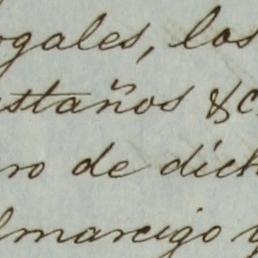 ogales, los
astaños &c
ro de dich
lmarcigo y